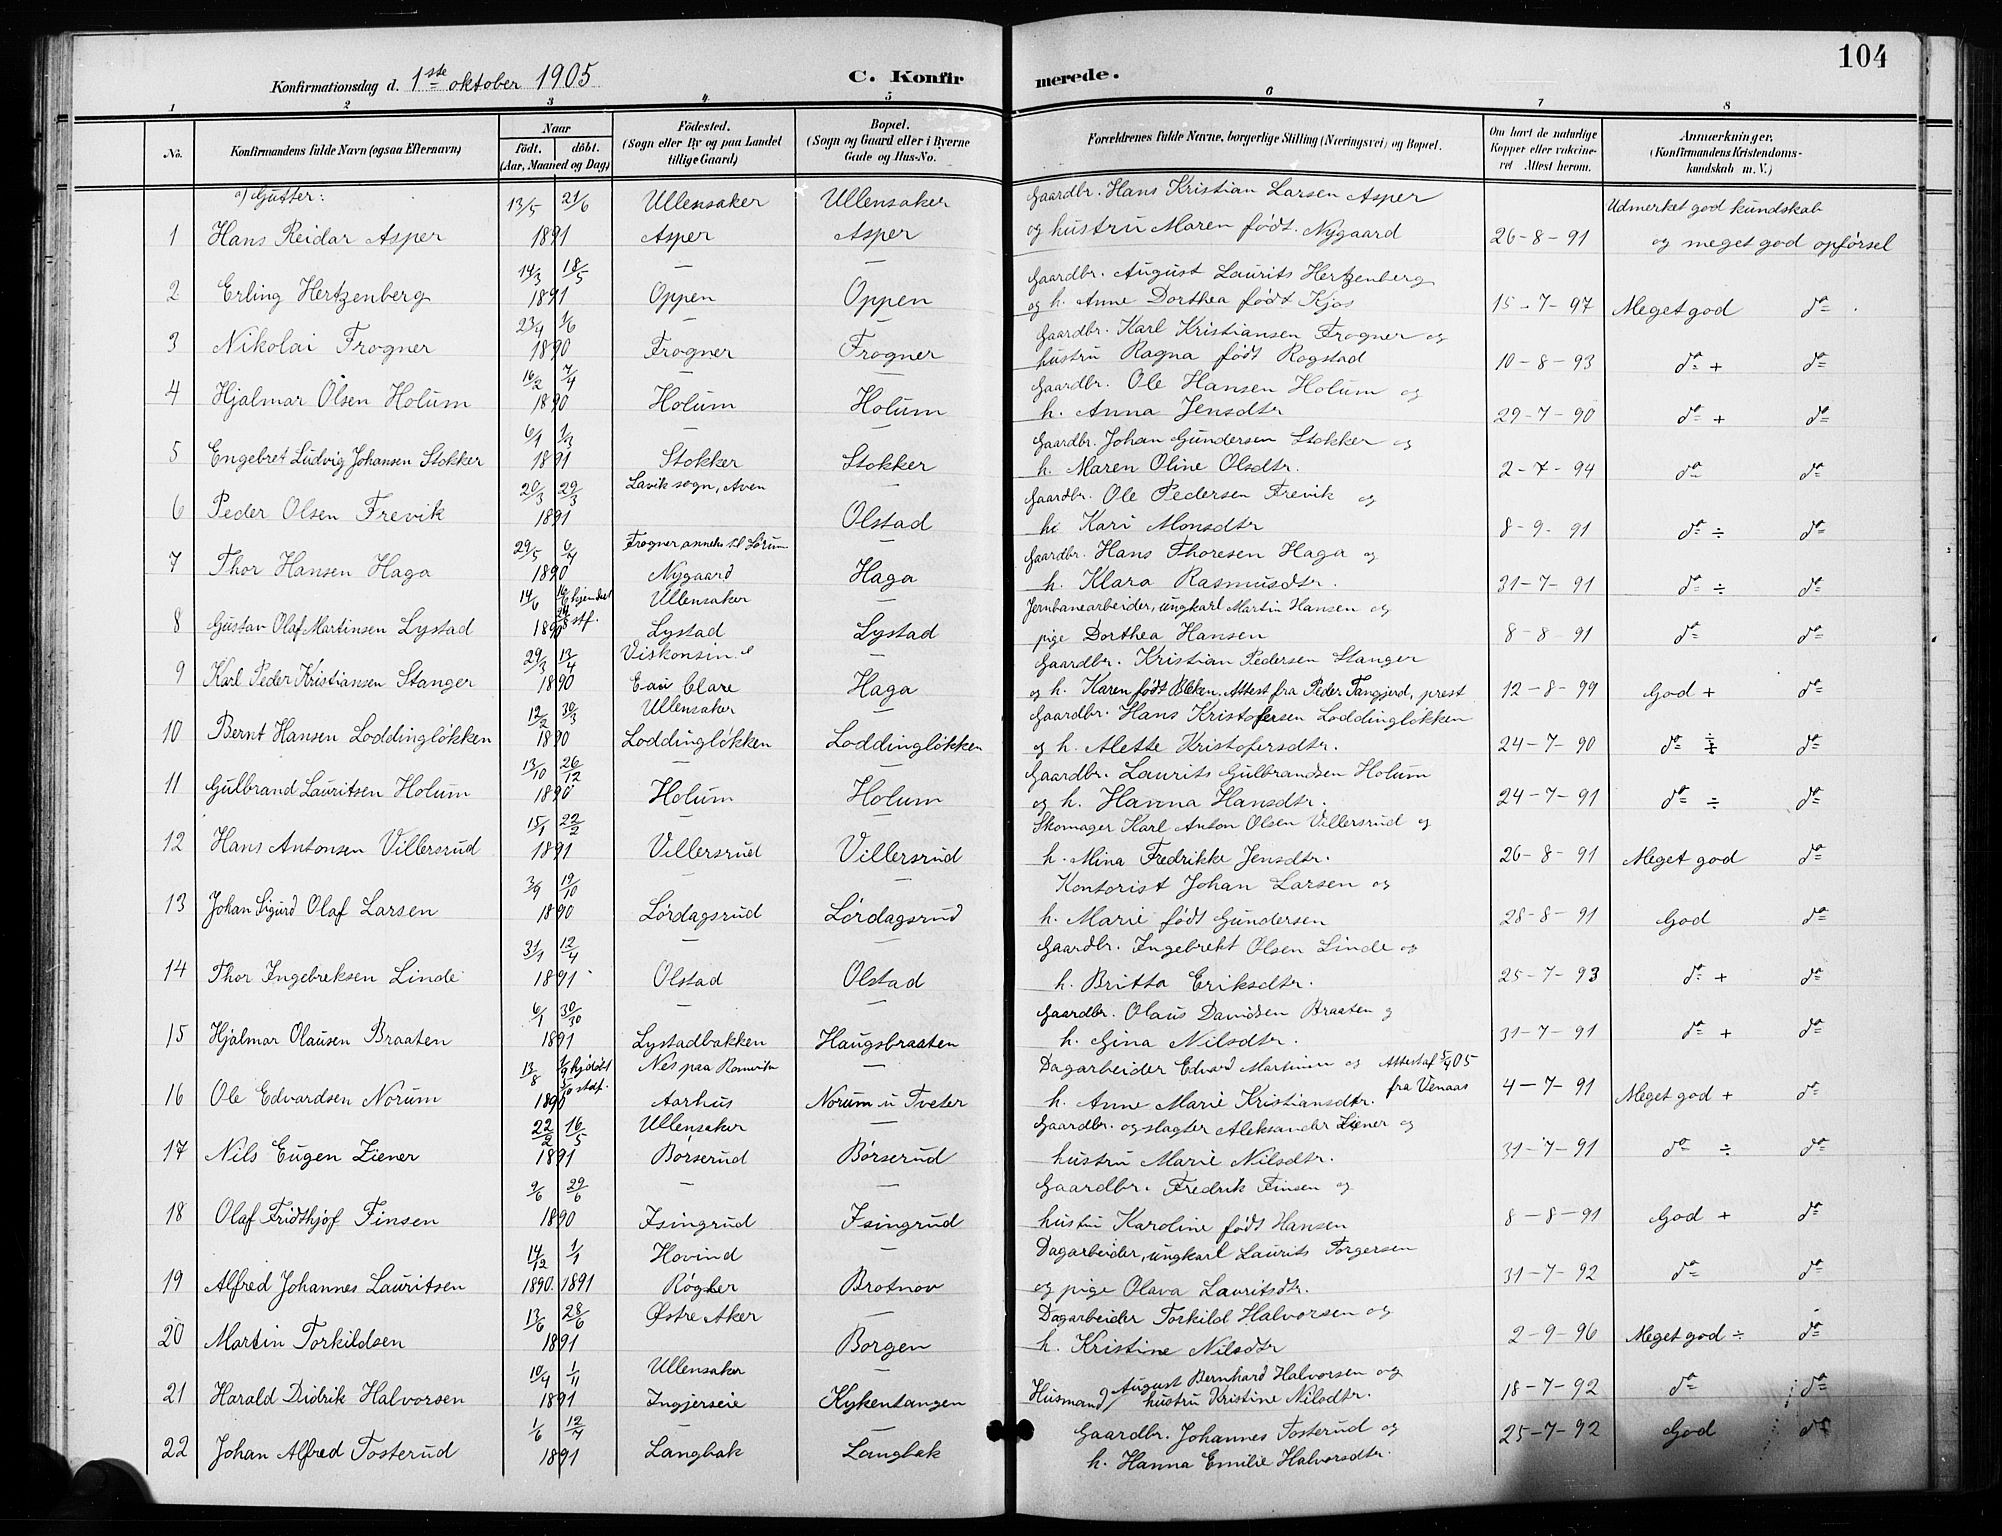 104
Konfirmationsdag d. 1ste oktober 1905. C. Konfirmerede.
1 2 3 4 5 6 7 8
No. Konfirmandens fulde Navn (ogsaa Efternavn) Naar födt. döbt. (Aar, Maaned og Dag) Födested. (Sogn eller By og paa Landet tillige Gaard) Bopæl. (Sogn og Gaard eller i Byerne Gade og Hus-No. Forældrenes fulde Navne, borgerlige Stilling (Næringsvei) og Bopæl. Om havt de naturlige Kopper eller vaccineret Attest herom. Anmærkninger, (Konfirmandens Kristendomskundskab m. V.)
a) Gutter: 13/5 21/6 Ullensaker Ullensaker Gaardbr. Hans Kristian Larsen Asper Udmerket god kundskab
1 Hans Reidar Asper 1891 Asper Asper og hustru Maren født Nygaard 26-8-91 og meget god opførsel
14/3 18/5 — — Gaardbr. August Laurits Hertzenberg
2 Erling Hertzenberg 1891 Oppen Oppen og h. Anne Dorthea født Kjos 15-7-97 Meget god do
23/4 1/6 — — Gaardbr. Karl Kristiansen Frogner og
3 Nikolai Frogner 1890 Frogner Frogner hustru Ragna født Rogstad 10-8-93 do + do
16/2 7/4 — — Gaardbr. Ole Hansen Holum og
4 Hjalmar Olsen Holum 1890 Holum Holum h. Anna Jensdtr 29-7-90 do + do
6/1 1/3 Gaardbr. Johan Gundersen Stokker og
5 Engebret Ludvig Johansen Stokker 1891 Stokker Stokker h. Maren Oline Olsdtr. 2-7-94 do do
20/3 29/3 Lavik sogn, Aven Gaardbr. Ole Pedersen Frevik og
6 Peder Olsen Frevik 1891 Olstad h. Kari Monsdtr 8-9-91 do ÷ do
29/5 6/7 Frogner, anneks til Sørum — Gaardbr. Hans Thoresen Haga og
7 Thor Hansen Haga 1890 Nygaard Haga h. Klara Rasmusdtr. 31-7-91 do ÷ do
14/6 hjemdøbt Ullensaker — Jernbanearbeider, ungkarl Martin Hansen og
8 Gustav Olaf Martinsen Lystad 1890 stf. Lystad Lystad pige Dorthea Hansen 8-8-91 do do
29/3 13/4 Viskonsin — Gaardbr. Kristian Pedersen Stanger
9 Karl Peder Kristiansen Stanger 1890 Eau Clare Haga og h. Karen født Bleken. Attest fra Peder Tangjerd, prest 12-8-99 God + do
12/2 30/3 Ullensaker — Gaardbr. Hans Kristofersen Loddingløkken
10 Bernt Hansen Loddingløkken 1890 Loddingløkken Loddingløkken og h. Alette Kristofersdtr. 24-7-90 do do
13/10 26/12 — — Gaardbr. Laurits Gulbrandsen Holum
11 Gulbrand Lauritsen Holum 1890 Holum Holum og h. Hanna Hansdtr. 24-7-91 do ÷ do
15/1 22/2 — — Skomager Karl Anton Olsen Villersrud og
12 Hans Antonsen Villersrud 1891 Villersrud Villersrud h. Mina Fredrikke Jensdtr. 26-8-91 Meget god do
3/9 19/10 — — Kontorist Johan Larsen og
13 Johan Sigurd Olaf Larsen 1890 Lørdagsrud Lørdagsrud h. Marie født Gundersen 28-8-91 God do
31/1 12/4 — — Gaardbr. Ingebrekt Olsen Linde og
14 Thor Ingebreksen Linde 1891 Olstad Olstad h. Britta Eriksdtr. 25-7-93 do + do
6/1 30/30 — — Gaardbr. Olaus Davidsen Braaten og
15 Hjalmar Olausen Braaten 1891 Lystadbakken Haugsbraaten h. Gina Nilsdtr. 31-7-91 do + do
13/8 Nes paa Romerike — Dagarbeider Edvard Martinsen og Attest af 5/4 05
16 Ole Edvardsen Norum 1890 Aarhus Norum u Tveter h. Anne Marie Kristiansdtr. fra Venaas 4-7-91 Meget god + do
22/2 16/5 Ullensaker — Gaardbr. og slagter Aleksander Ziener og
17 Nils Eugen Ziener 1891 Børserud Børserud hustru Marie Nilsdtr. 31-7-91 do ÷ do
9/6 29/6 — — Gaardbr. Fredrik Finsen og
18 Olaf Fridthjof Finsen 1890 Isingrud Isingrud hustru Karoline født Hansen 8-8-91 God + do
14/12 1/1 Hovind — Dagarbeider, ungkarl Laurits Torgersen
19 Alfred Johannes Lauritsen 1890. 1891 Røgler Brotnov og pige Olava Lauritsdtr. 31-7-92 do do
13/6 28/6 Østre Aker — Dagarbeider Torkild Halvorsen og
20 Martin Torkildsen 1891 Borgen h. Kristine Nilsdtr 2-9-96 Meget god ÷ do
10/4 1/11 Ullensaker — August Bernhard Halvorsen og
21 Harald Didrik Halvorsen 1891 Ingjerseie Kykentangen Husmand hustru Kristine Nilsdtr. 18-7-92 do do
1/6 12/7 — — Gaardbr. Johannes Tosterud og
22 Johan Alfred Tosterud 1891 Langbak Langbak h. Hanna Emilie Halvorsdtr 25-7-92 God do